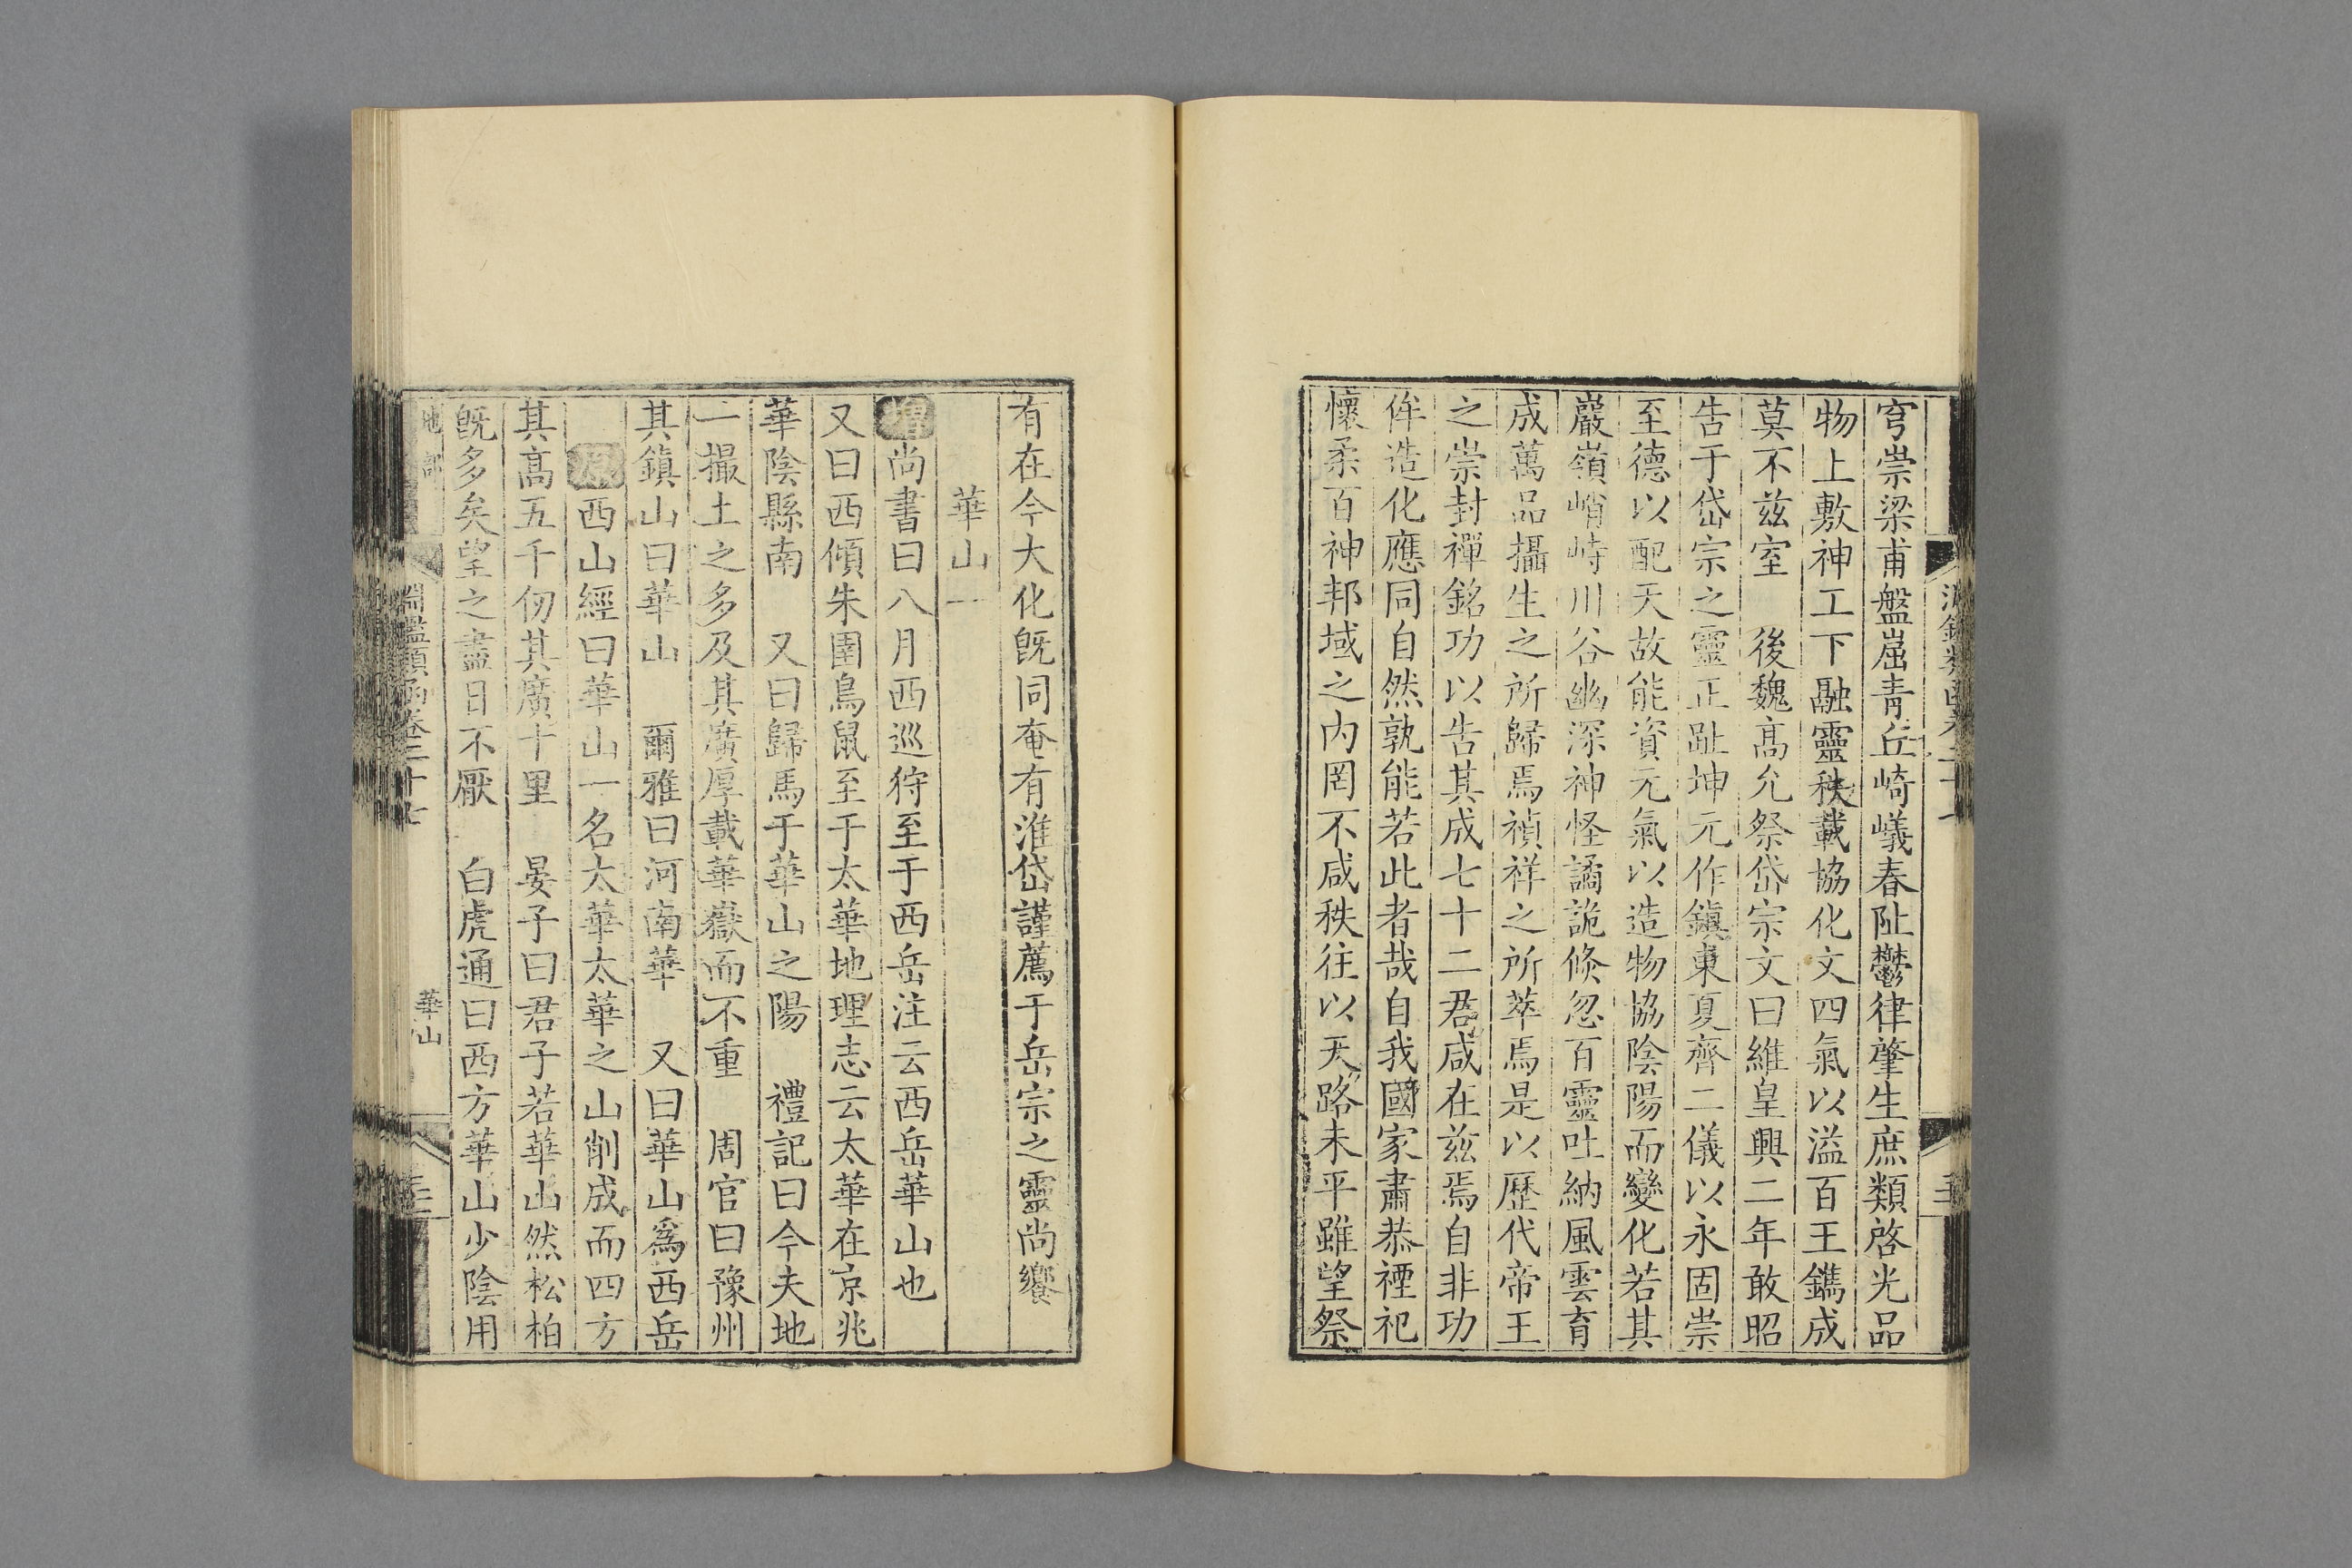 穹崇梁甫盤崫青丘崎嶬春阯鬱律肇生庶類啓光品
物上敷神工下融靈秩載協化文四氣以溢百王鐫成
莫不兹室　後魏高允祭岱宗文曰維皇興二年敢昭
告于岱宗之靈正趾坤元作鎮東夏齊二儀以永固崇
至德以配天故能資元氣以造物協陰陽而變化若其
巖嶺峭峙川谷幽深神怪譎詭倏忽百靈吐納風雲育
成萬品攝生之所歸焉禎祥之所萃焉是以歷代帝王
之崇封禪銘功以告其成七十二君咸在兹焉自非功
侔造化應同自然孰能若此者哉自我國家肅恭禋祀
懷柔百神邦域之内罔不咸秩往以天路未平雖望祭
有在今大化旣同奄有淮岱謹薦于岳宗之靈尚饗
華山一
增尚書曰八月西巡狩至于西岳注云西岳華山也
又曰西傾朱圉鳥鼠至于太華地理志云太華在京兆
華陰縣南　又曰歸馬于華山之陽　禮記曰今夫地
一撮土之多及其廣厚載華嶽而不重　周官曰豫州
其鎮山曰華山　爾雅曰河南華　又曰華山爲西岳
原西山經曰華山一名太華太華之山削成而四方
其高五千仞其廣十里　晏子曰君子若華山然松柏
旣多矣望之盡日不厭　白虎通曰西方華山少陰用
地部
淵鑑類函卷二十七
華山